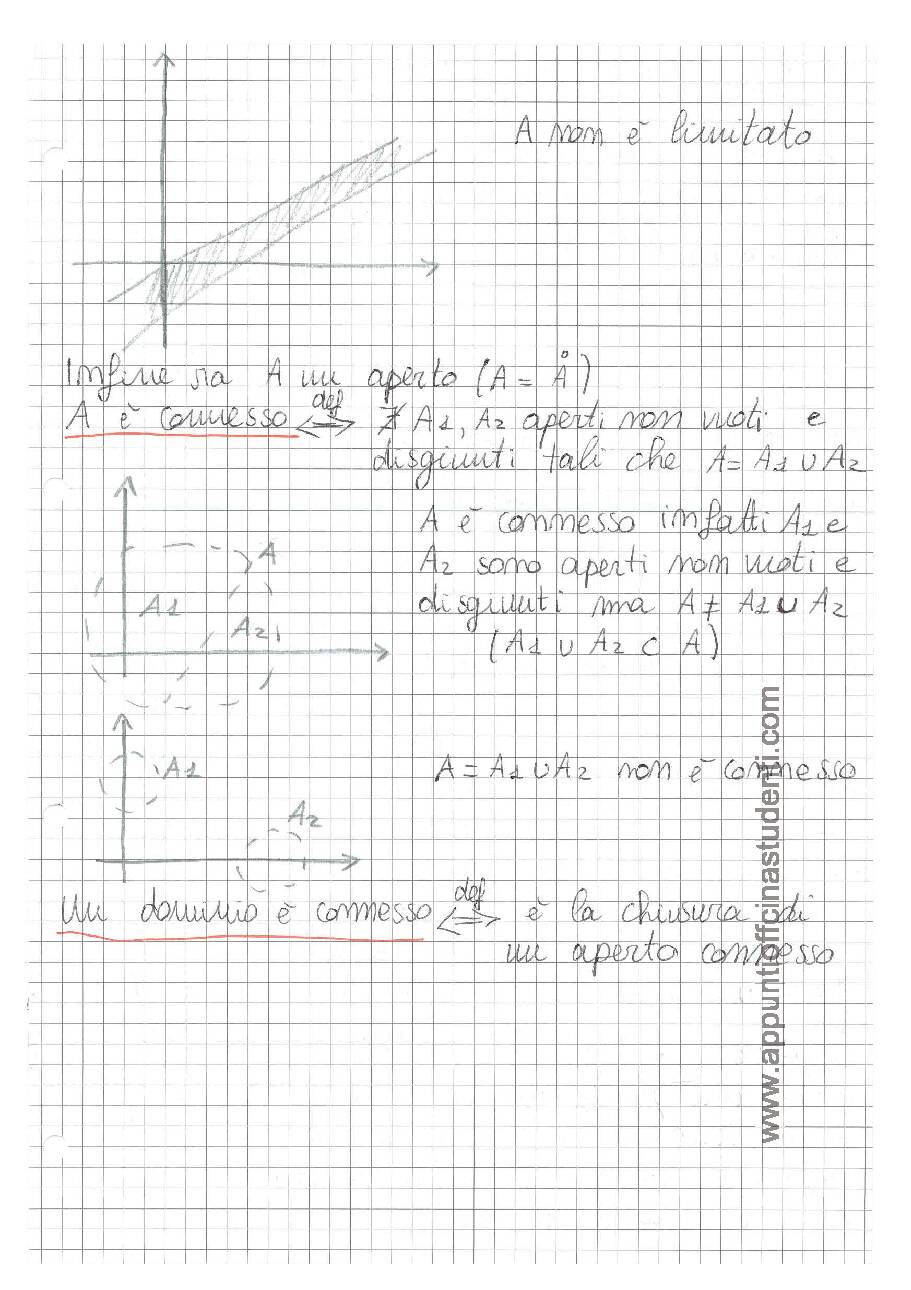 A non è limitato
Infine sia A un aperto (A = Å)
A è connesso ⟺def ∄ A1, A2 aperti non vuoti e
disgiunti tali che A = A1 ∪ A2
A
A1
A2
A è connesso infatti A1 e
A2 sono aperti non vuoti e
disgiunti ma A ≠ A1 ∪ A2
(A1 ∪ A2 ⊂ A)
A1
A2
A = A1 ∪ A2 non è connesso
Un dominio è connesso ⟺def è la chiusura di
un aperto connesso
www.appuntioffcinastudenti.com